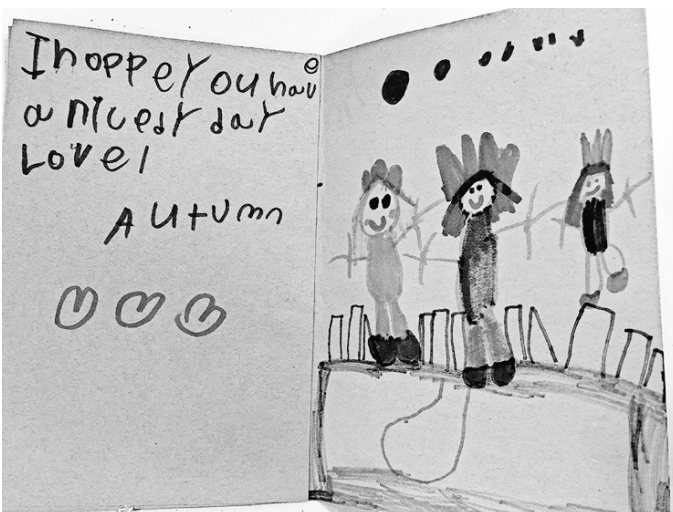 I hoppe You have
a nicedY daY
Love!
AUtumn